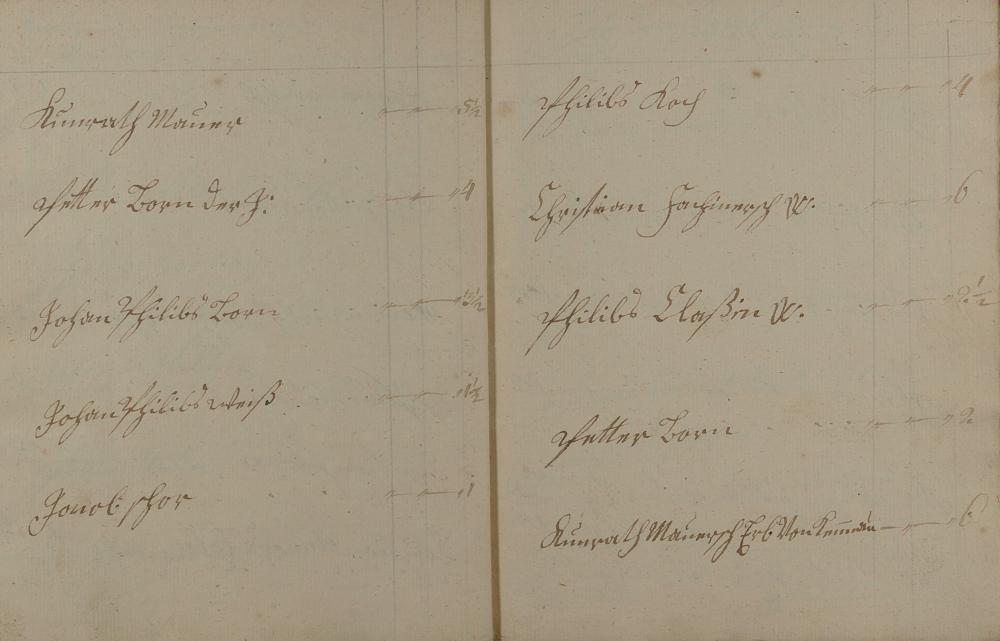 Kunrath Mauer — — 5½
Petter Born der J: — — 4
Johan Philibs Born — — ½
Johan Philibs Weiß — — 1½
Jacob schor — — 1
Philibs Koch — — 4
Christian W. — — 6
Philibs Claßin W. — — 2½
Petter Born — — 2
Kunrath Mauersch Erb Von — — 6